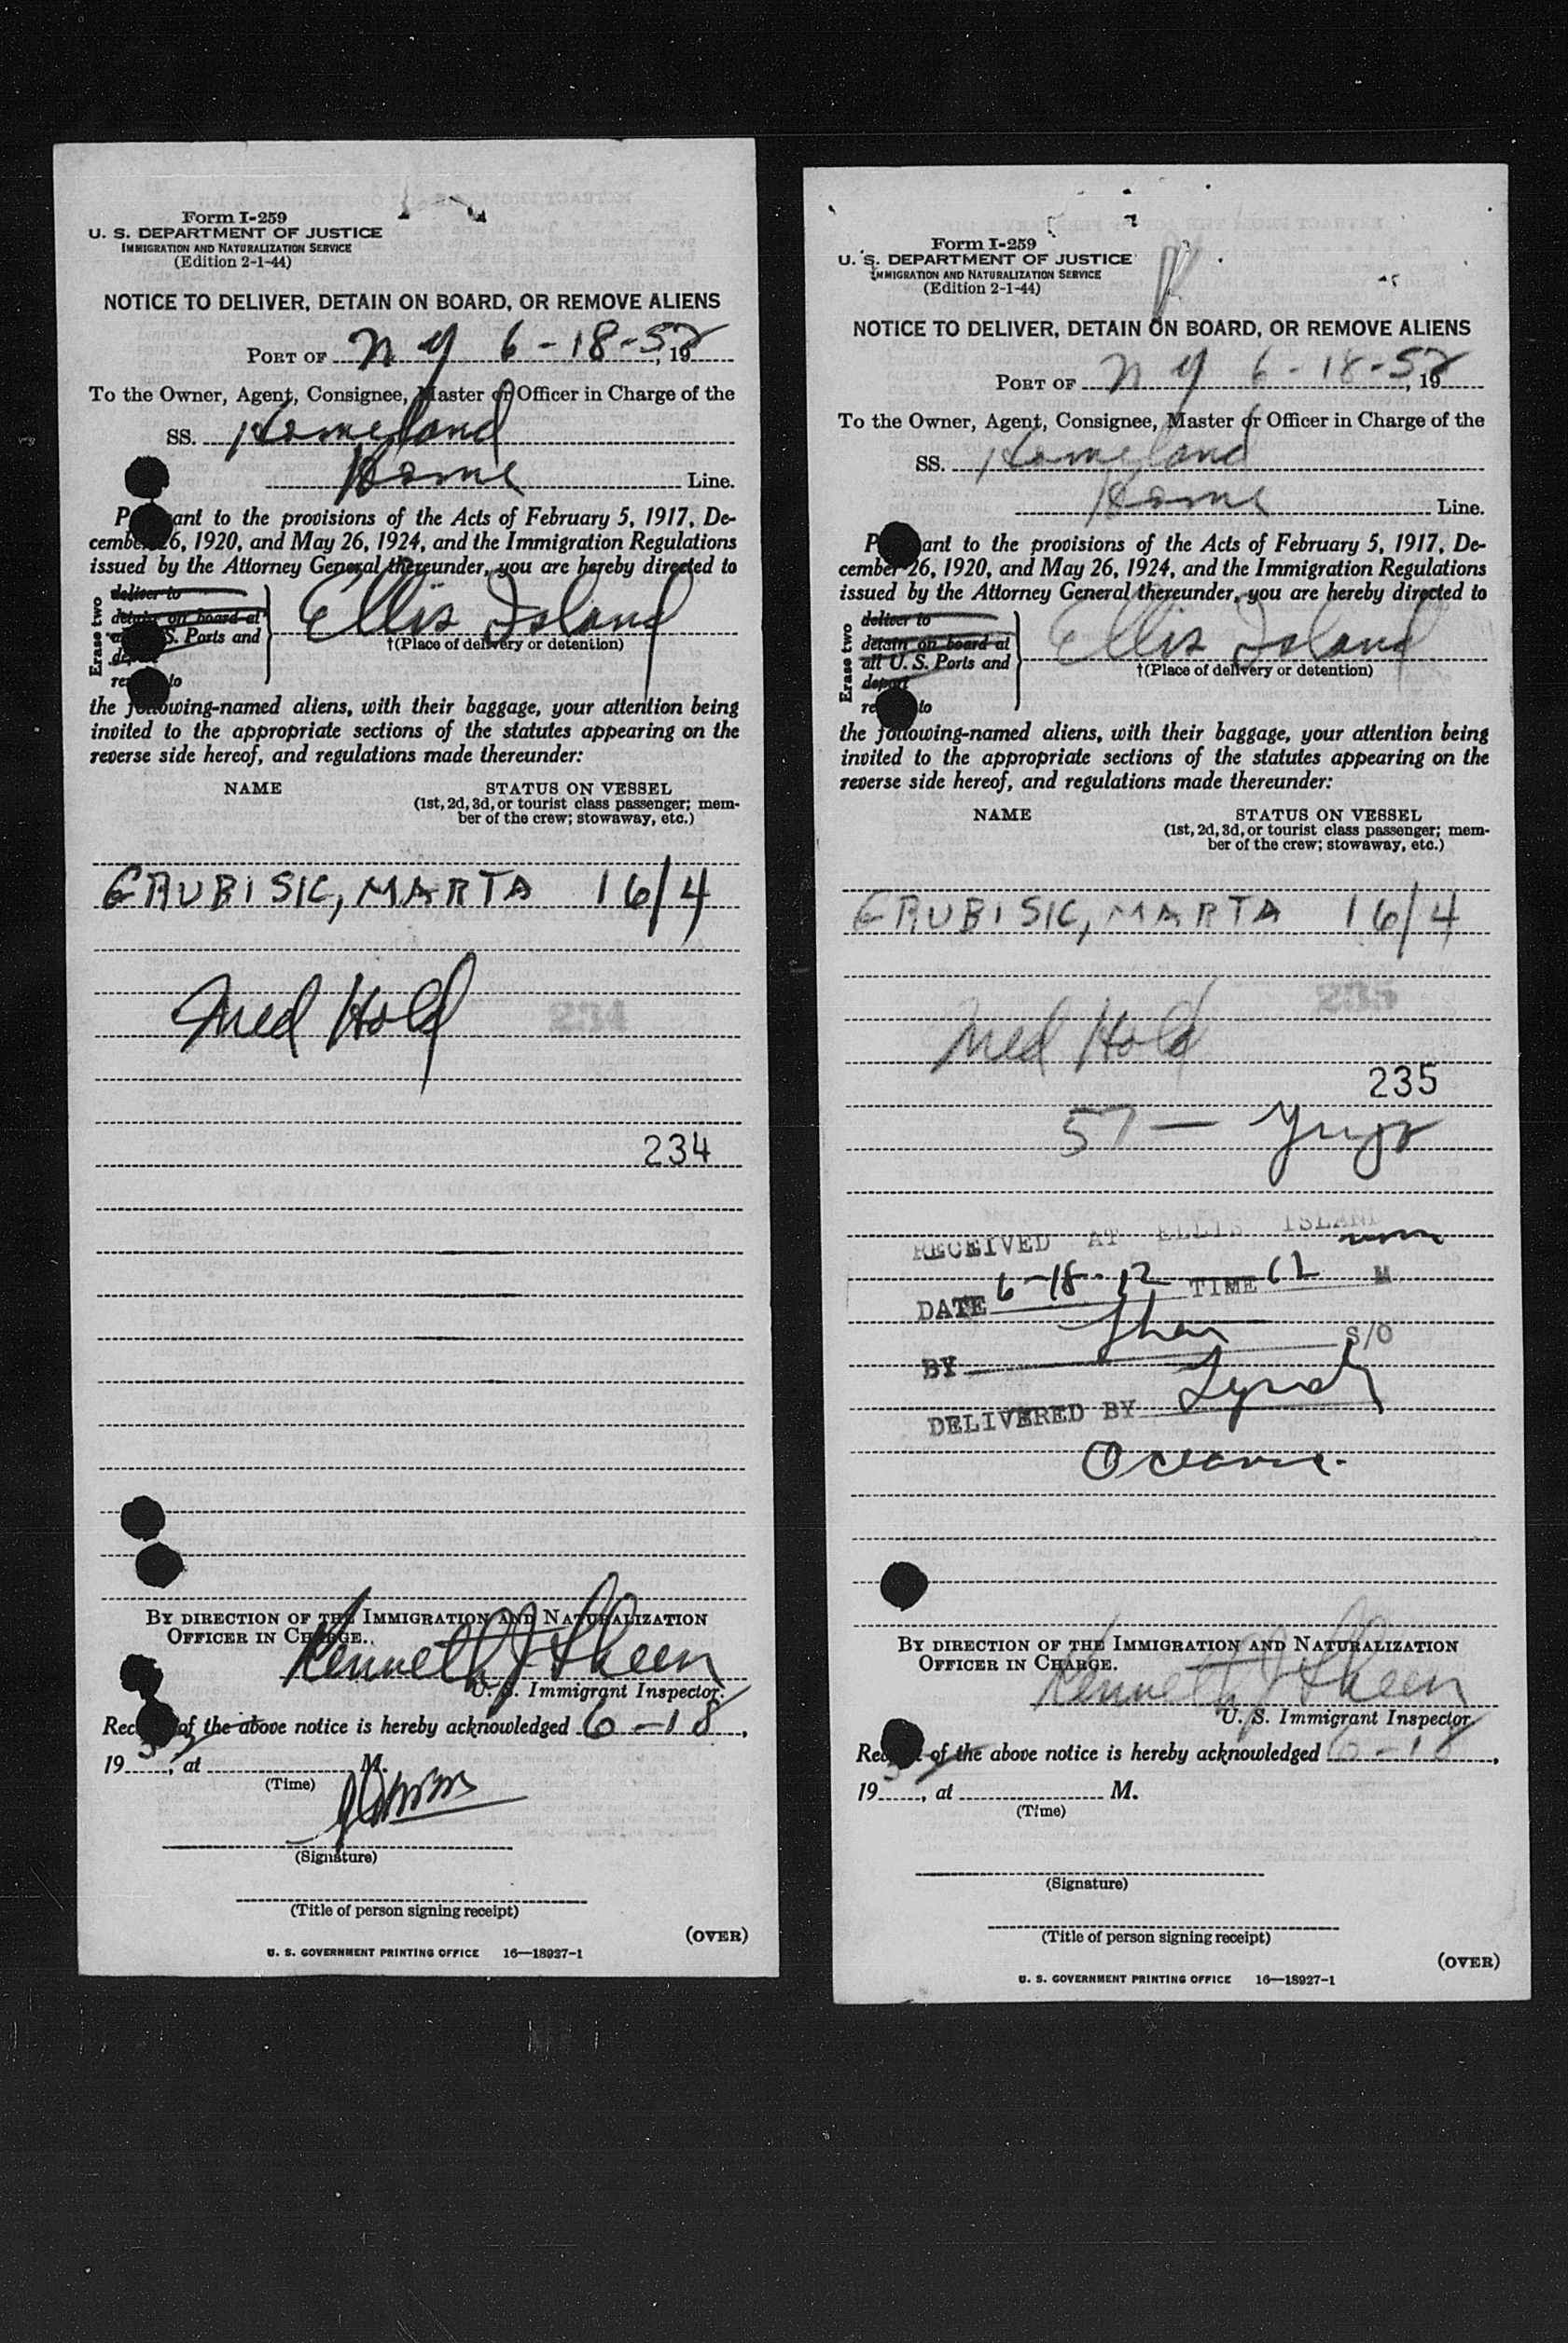 Form I-259
U. S. DEPARTMENT OF JUSTICE
IMMIGRATION AND NATURALIZATION SERVICE
(Edition 2-1-44)
NOTICE TO DELIVER, DETAIN ON BOARD, OR REMOVE ALIENS
PORT OF N Y 6-18-52, 19
To the Owner, Agent, Consignee, Master or Officer in Charge of the
SS. Homeland
Home Line.
P ant to the provisions of the Acts of February 5, 1917, De-
cember 26, 1920, and May 26, 1924, and the Immigration Regulations
issued by the Attorney General thereunder, you are hereby directed to
Erase two
deliver to
detain on board at
S. Ports and
re to
Ellis Island
†(Place of delivery or detention)
the following-named aliens, with their baggage, your attention being
invited to the appropriate sections of the statutes appearing on the
reverse side hereof, and regulations made thereunder:
NAME STATUS ON VESSEL
(1st, 2d, 3d, or tourist class passenger; mem-
ber of the crew; stowaway, etc.)
GRUBISIC, MARTA 16/4
Med Hold 234
234
BY DIRECTION OF THE IMMIGRATION AND NATURALIZATION
OFFICER IN CHARGE.
Kenneth J Skeen
U. S. Immigrant Inspector.
Rec of the above notice is hereby acknowledged 6-18,
19 52, at M.
(Time)
(Signature)
(Title of person signing receipt)
(OVER)
U. S. GOVERNMENT PRINTING OFFICE 16—18927-1
Form I-259
U. S. DEPARTMENT OF JUSTICE
IMMIGRATION AND NATURALIZATION SERVICE
(Edition 2-1-44)
NOTICE TO DELIVER, DETAIN ON BOARD, OR REMOVE ALIENS
PORT OF N Y 6-18-52, 19
To the Owner, Agent, Consignee, Master or Officer in Charge of the
SS. Homeland
Home Line.
P ant to the provisions of the Acts of February 5, 1917, De-
cember 26, 1920, and May 26, 1924, and the Immigration Regulations
issued by the Attorney General thereunder, you are hereby directed to
Erase two
deliver to
detain on board at
all U. S. Ports and
deport
re to
Ellis Island
†(Place of delivery or detention)
the following-named aliens, with their baggage, your attention being
invited to the appropriate sections of the statutes appearing on the
reverse side hereof, and regulations made thereunder:
NAME STATUS ON VESSEL
(1st, 2d, 3d, or tourist class passenger; mem-
ber of the crew; stowaway, etc.)
GRUBISIC, MARTA 16/4
Med Hold 235
235
57 — Yugo
RECEIVED AT ELLIS ISLAND
DATE 6-18-52 TIME 12 M
BY S/O
DELIVERED BY Lynch
BY DIRECTION OF THE IMMIGRATION AND NATURALIZATION
OFFICER IN CHARGE.
Kenneth J Skeen
U. S. Immigrant Inspector.
Rec of the above notice is hereby acknowledged 6-18,
19 52, at M.
(Time)
(Signature)
(Title of person signing receipt)
(OVER)
U. S. GOVERNMENT PRINTING OFFICE 16—18927-1